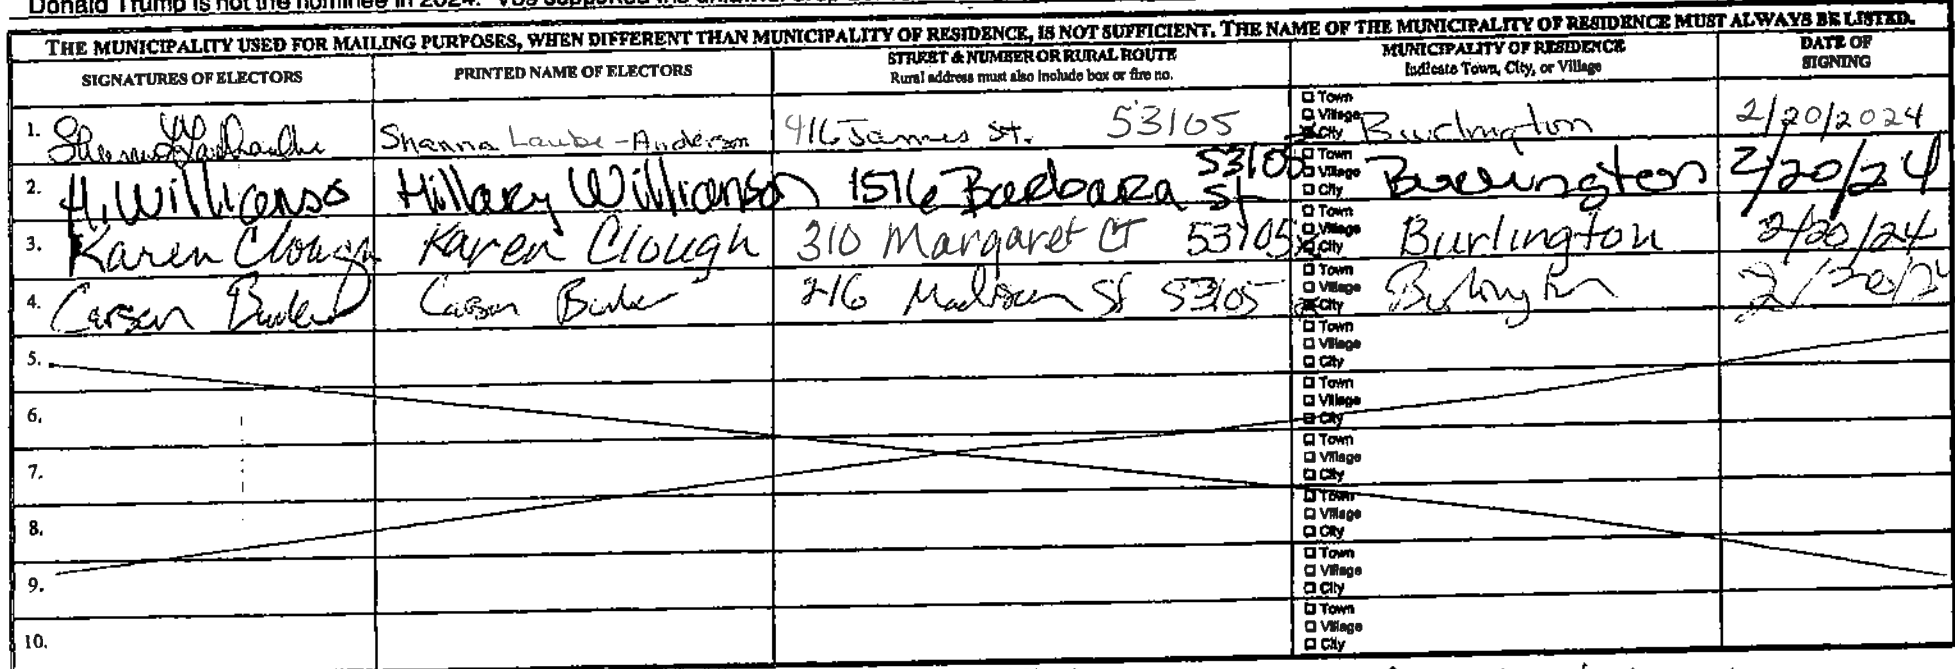 Donald Trump is not the nominee in 2024.
THE MUNICIPALITY USED FOR MAILING PURPOSES, WHEN DIFFERENT THAN MUNICIPALITY OF RESIDENCE, IS NOT SUFFICIENT. THE NAME OF THE MUNICIPALITY OF RESIDENCE MUST ALWAYS BE LISTED.
SIGNATURES OF ELECTORS
PRINTED NAME OF ELECTORS
STREET & NUMBER OR RURAL ROUTE
Rural address must also include box or fire no.
MUNICIPALITY OF RESIDENCE
Indicate Town, City, or Village
DATE OF
SIGNING
1. Shanna Laube-Anderson 416 James St. 53105
Town
Village
City
Burlington 2/20/2024
2. H. Williamson Hillary Williamson 1516 Barbara St 53105
Town
Village
City
Burlington 2/20/24
3. Karen Clough Karen Clough 310 Margaret Ct 53105
Town
Village
City
Burlington 2/20/24
4. Carson Carson 216 Madison St 53105
Town
Village
City
Burlington 2/20/24
5.
Town
Village
City
6.
Town
Village
City
7.
Town
Village
City
8.
Town
Village
City
9.
Town
Village
City
10.
Town
Village
City